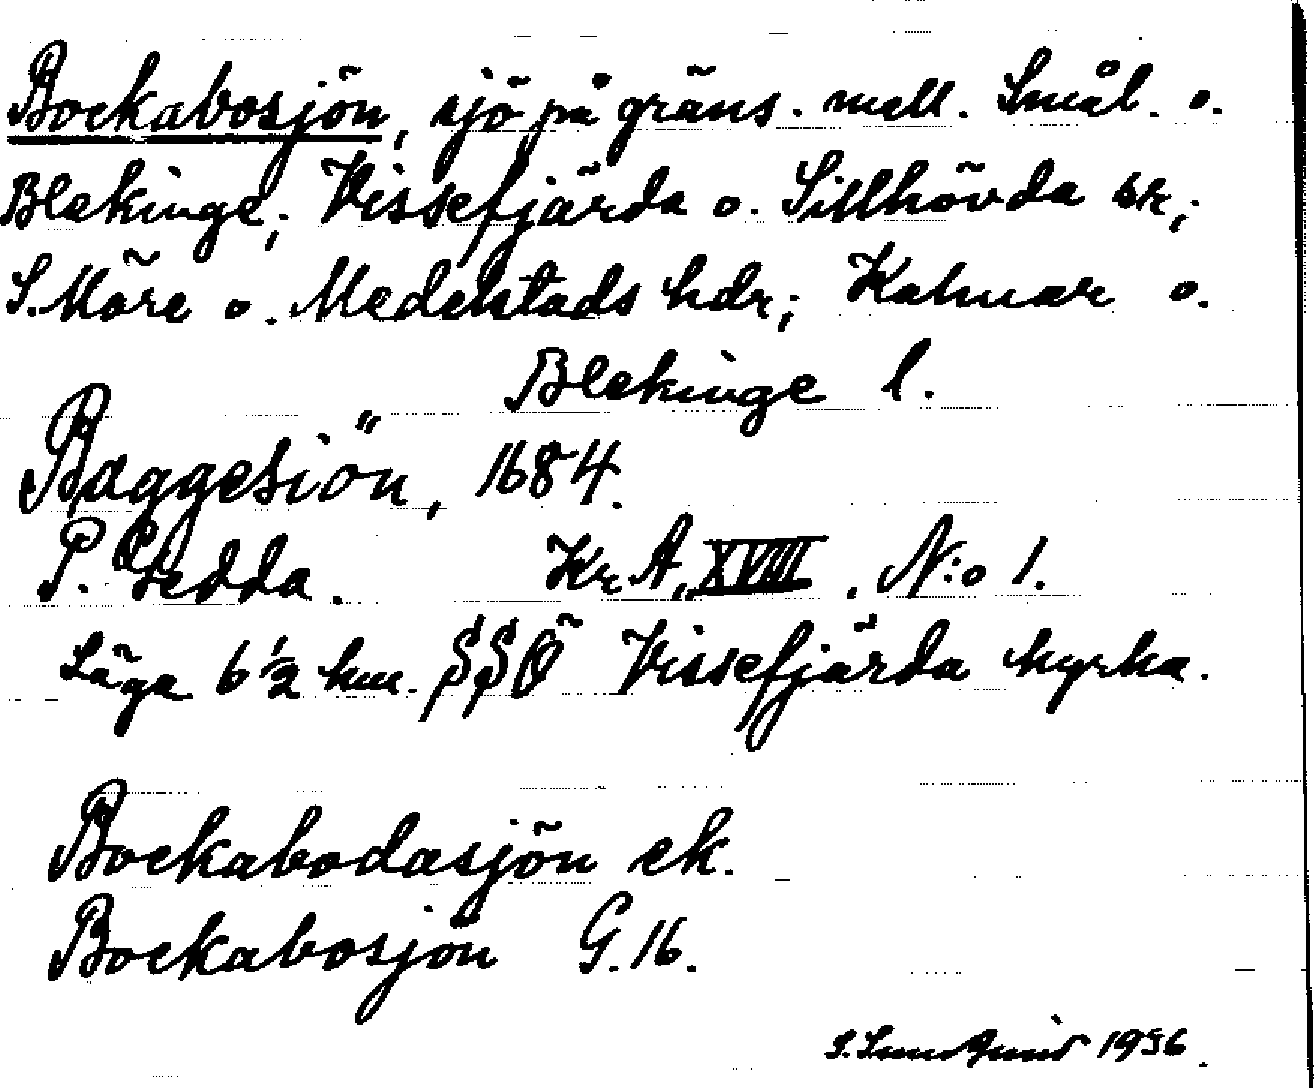 Bockabosjön, sjö på gräns. mell. Smål. o.
Blekinge; Vissefjärda o. Sillhövda sk;
S. Möre o. Medelstads hdr; Kalmar o.
Blekinge l.
Baggesiön, 1684.
P. Gedda. Kr. A, XVIII, N:o 1.
Läge 6 1/2 km. SSÖ Vissefjärda kyrka.
Bockabodasjön ek.
Bockabosjön G. 16.
S. 1936.